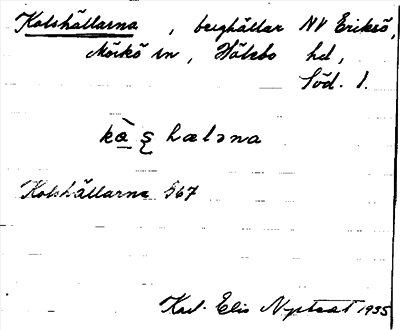 Kolshällarna, berghällar NV Eriksö,
Mörkö sn, Hölebo hd,
Söd. l.
kà̱ ʂ hæləna
Kolshällarna §67
Karl-Elis Nyptaat 1935